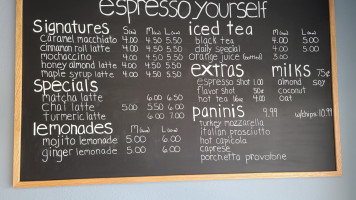 espresso yourself
Signatures S(12oz) M(16oz) L(20oz)
Caramel macchiato 4.00 4.50 5.50
cinnamon roll latte 4.00 4.50 5.50
mochaccino 4.00 4.50 5.50
honey almond latte 4.00 4.50 5.50
maple syrup latte 4.00 4.50 5.50
Specials
matcha latte 6.00 6.50
chai latte 5.00 5.50 6.00
turmeric latte 6.00 7.00
lemonades M L
mojito lemonade 5.00 6.00
ginger lemonade 5.00 6.00
iced tea M L
black tea 4.00 5.00
daily special 4.00 5.00
orange juice (bottled) 3.00
extras
espresso shot 1.00
flavor shot 50¢
hot tea 4.00
milks 75¢
almond soy
coconut
oat
paninis 9.99 w/chips 10.99
turkey mozzarella
italian prosciutto
hot capicola
caprese
porchetta provolone